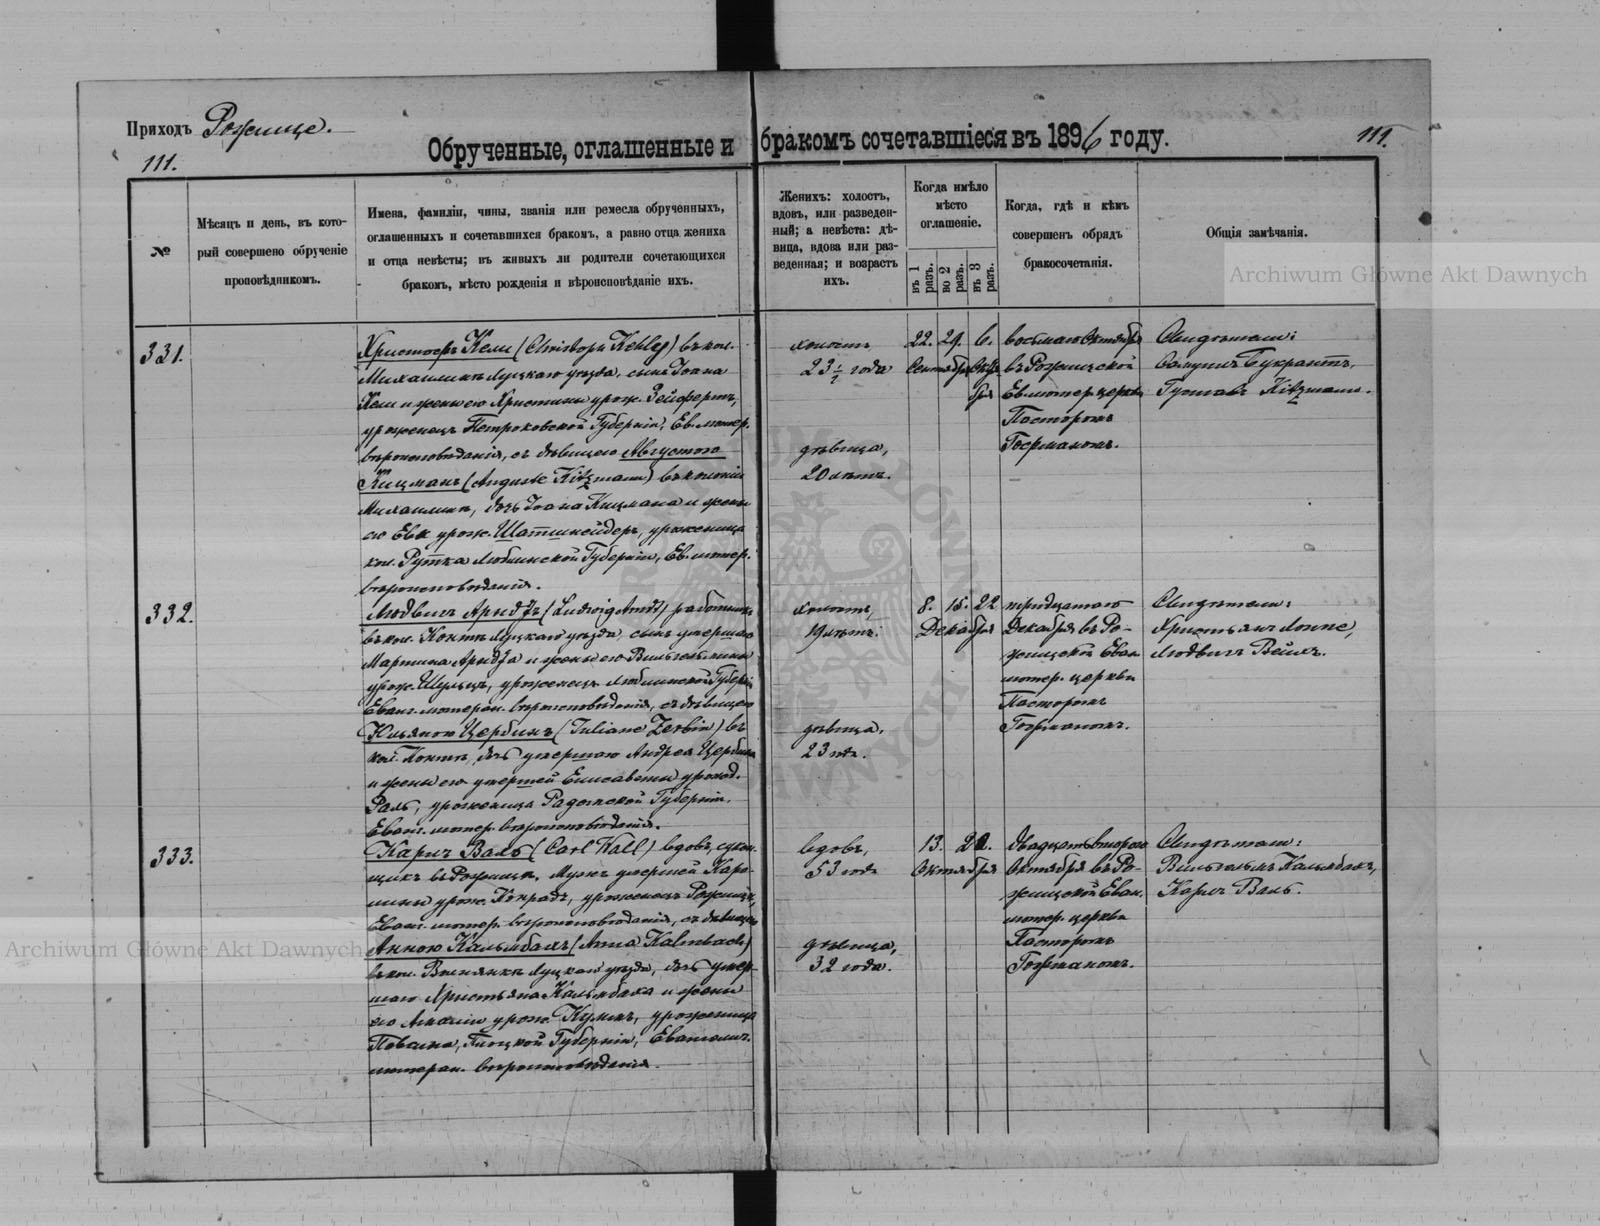 Приходъ Рожище.
111.
Обрученные, оглашенные и бракомъ сочетавшіеся въ 1896 году.
111.
№
Мѣсяцъ и день, въ кото-
рый совершено обрученіе
проповѣдникомъ.
Имена, фамиліи, чины, званія или ремесла обрученныхъ,
оглашенныхъ и сочетавшихся бракомъ, а равно отца жениха
и отца невѣсты; въ живыхъ ли родители сочетающихся
бракомъ, мѣсто рожденія и вѣроисповѣданіе ихъ.
Женихъ: холостъ,
вдовъ, или разведен-
ный; а невѣста: дѣ-
вица, вдова или раз-
веденная; и возрастъ
ихъ.
Когда имѣло
мѣсто
оглашеніе.
въ 1 разъ.
во 2 разъ.
въ 3 разъ.
Когда, гдѣ и кѣмъ
совершенъ обрядъ
бракосочетанія.
Общія замѣчанія.
Archiwum Główne Akt Dawnych
331.
Христофъ Кели (Christoph Kehley) въ кол.
Михаилинъ Луцкаго уѣзда, сынъ Іоана
Кели и жены его Христины урож. Зейфертъ,
уроженецъ Петроковской Губерніи, Ев. лютер.
вѣроисповѣданія, съ дѣвицею Августою
Кицманъ (Auguste Kitzmann) въ колоніи
Михаилинъ, дочь Іоана Кицмана и жены
его Евы урож. Шатшнейдеръ, уроженица
кол. Рутка Люблинской Губерніи, Ев. лютер.
вѣроисповѣданія.
холостъ
23 ½ года
дѣвица,
20 лѣтъ.
22. 29. 6.
Сентября Октября
восьмаго Октября
въ Рожищской
Ев. лютер. церкви
Пасторомъ
Госрманомъ.
Свидѣтели:
Самуилъ Букрантъ,
Густавъ Kitzmann.
332.
Людвигъ Арндтъ (Ludwig Arndt) работникъ
въ кол. Контъ Луцкаго уѣзда, сынъ умершаго
Мартина Арндта и жены его Вильгельмины
урож. Шульцъ, уроженецъ Люблинской Губерніи
Еванг. лютеран. вѣроисповѣданія, съ дѣвицею
Юльяною Цербинъ (Juliane Zerbin) въ
кол. Контъ, дочь умершаго Андрея Цербина
и жены его умершей Елисаветы урожд.
Раль, уроженица Радомской Губерніи.
Еванг. лютер. вѣроисповѣданія.
холостъ,
19 лѣтъ.
дѣвица,
23 лѣт.
8. 15. 22
Декабря
тридцатаго
Декабря въ Ро-
жищской Еван.
лютер. церкви
Пасторомъ
Свидѣтели:
Христьянъ Лоппе,
Людвигъ Вейхъ.
333.
Карлъ Валь (Carl Wall) вдовъ, сукон-
щикъ въ Рожищѣ, мужъ умершей Каро-
лины урож. Конрадъ, уроженецъ Рожищъ,
Еванг. лютер. вѣроисповѣданія, съ дѣвицею
Анною Кальмбахъ (Anna Kalmbach)
въ кол. Луцкаго уѣзда, дочь умер-
шаго Христьяна Кальмбаха и жены
его Амаліи урож. Кумкъ, уроженица
Плоцкой Губерніи, Евангелич.
лютеран. вѣроисповѣданія.
вдовъ,
53 года
дѣвица,
32 года.
13. 20.
Октября
двадцать втораго
Октября въ Ро-
жищской Еван.
лютер. церкви
Пасторомъ
Свидѣтели:
Вильгельмъ Кальмбахъ,
Карлъ Валь.
Archiwum Główne Akt Dawnych